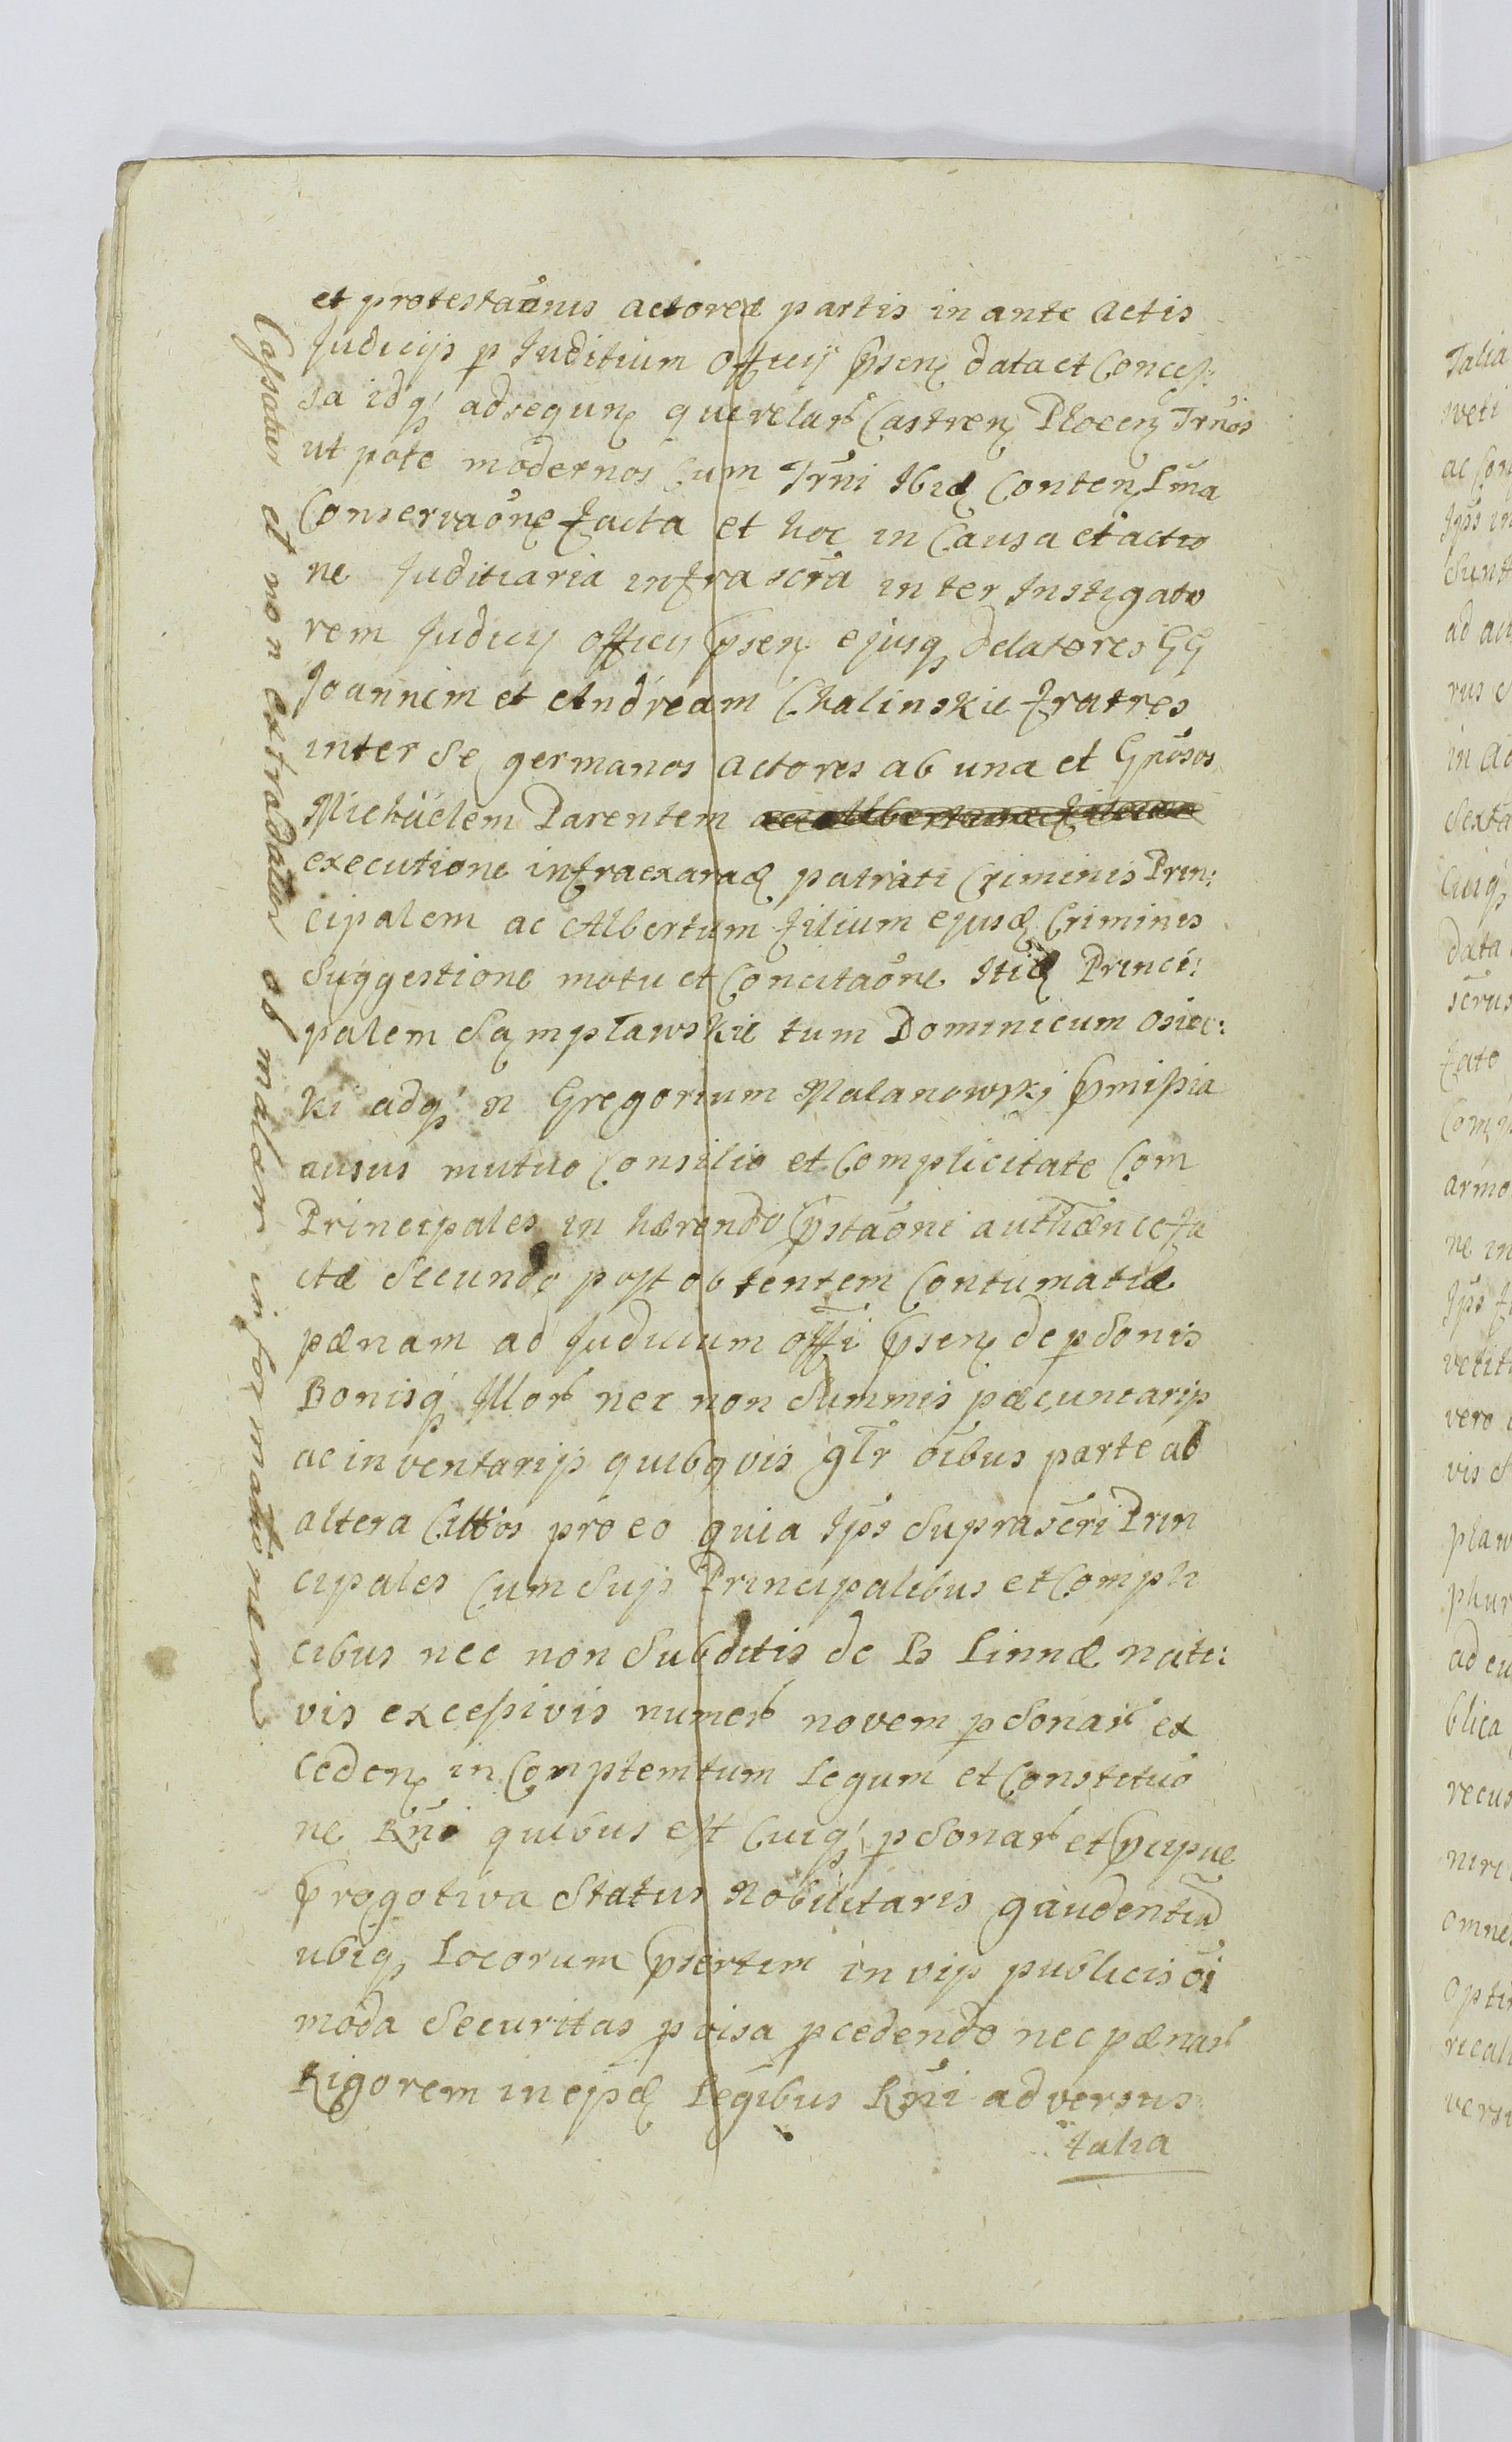 et protestaonis actoreæ partis in ante actis
Judicijs p Juditium Officij psen data et Concess:
sa idq adsequn querelar Castren Plocen Trnos
ut pote modernos Cum Trni Ibid Conten Lma
Conservaone facta et hoc in Causa et actio
ne Juditiaria infra scra inter Instigato
rem Judicij officij psen ejusq delatores GG
Joannem et Andream Chalinskie fratres
inter se germanos actores ab una et Gnosos
Michaelem Parentem ac Albertum filium
executione infraexarad patrati Criminis Prin:
cipalem ac Albertum filium ejusd Criminis
Suggestione motu et Concitaone Itid Princi:
palem Samplawskie tum Dominicum Osiec:
ki adq n Gregorium Malanowskj pmissia
ausus mutuo Consilio et Complicitate Com
Principales in hærendo pstaoni authæn ce fa
ctæ Secundo post obtentem Contumatiæ
pænam ad Judicium offi psen de psonis
Bonisq Illor nec non Summis pæcuniarijs
ac inventarijs quibqvis glr oibus parte ab
altera Cittos pro eo quia Ips Suprascri Prin
cipales Cum Suijs Principalibus et Compli
cibus nec non Subditis de B Linnæ nati:
vis excessivis numer novem psonar ex
ceden in Comptemtum Legum et Constituo
ne Rni quibus est Cuiq psonar et pcipue
progotiva Status Nobilitaris gaudentiu
ubiq Locorum psertim in vijs publicis oi
moda Securitas pvisa pcedendo nec pænar
Rigorem in ejsd Legibus Rni adversus
talia
Cassatur et non extradatur ob malam informationem